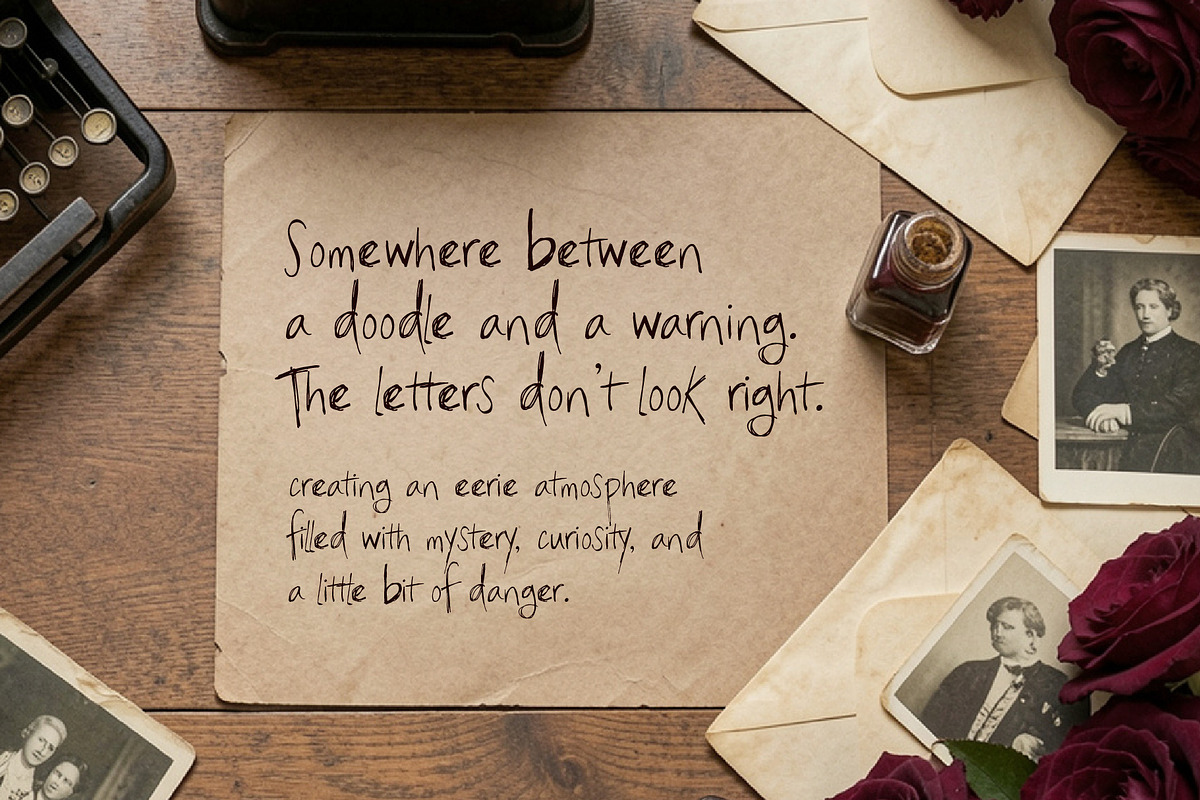 Somewhere between
a doodle and a warning.
The letters don't look right.
creating an eerie atmosphere
filled with mystery, curiosity, and
a little bit of danger.